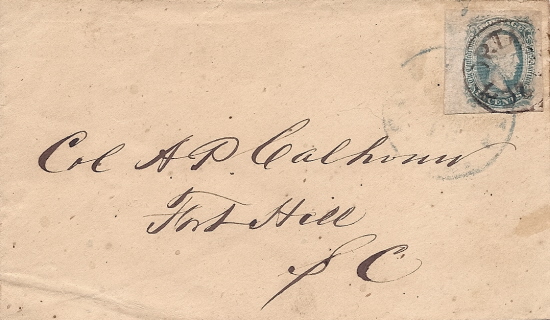 Col A P Calhoun
Fort Hill
S C